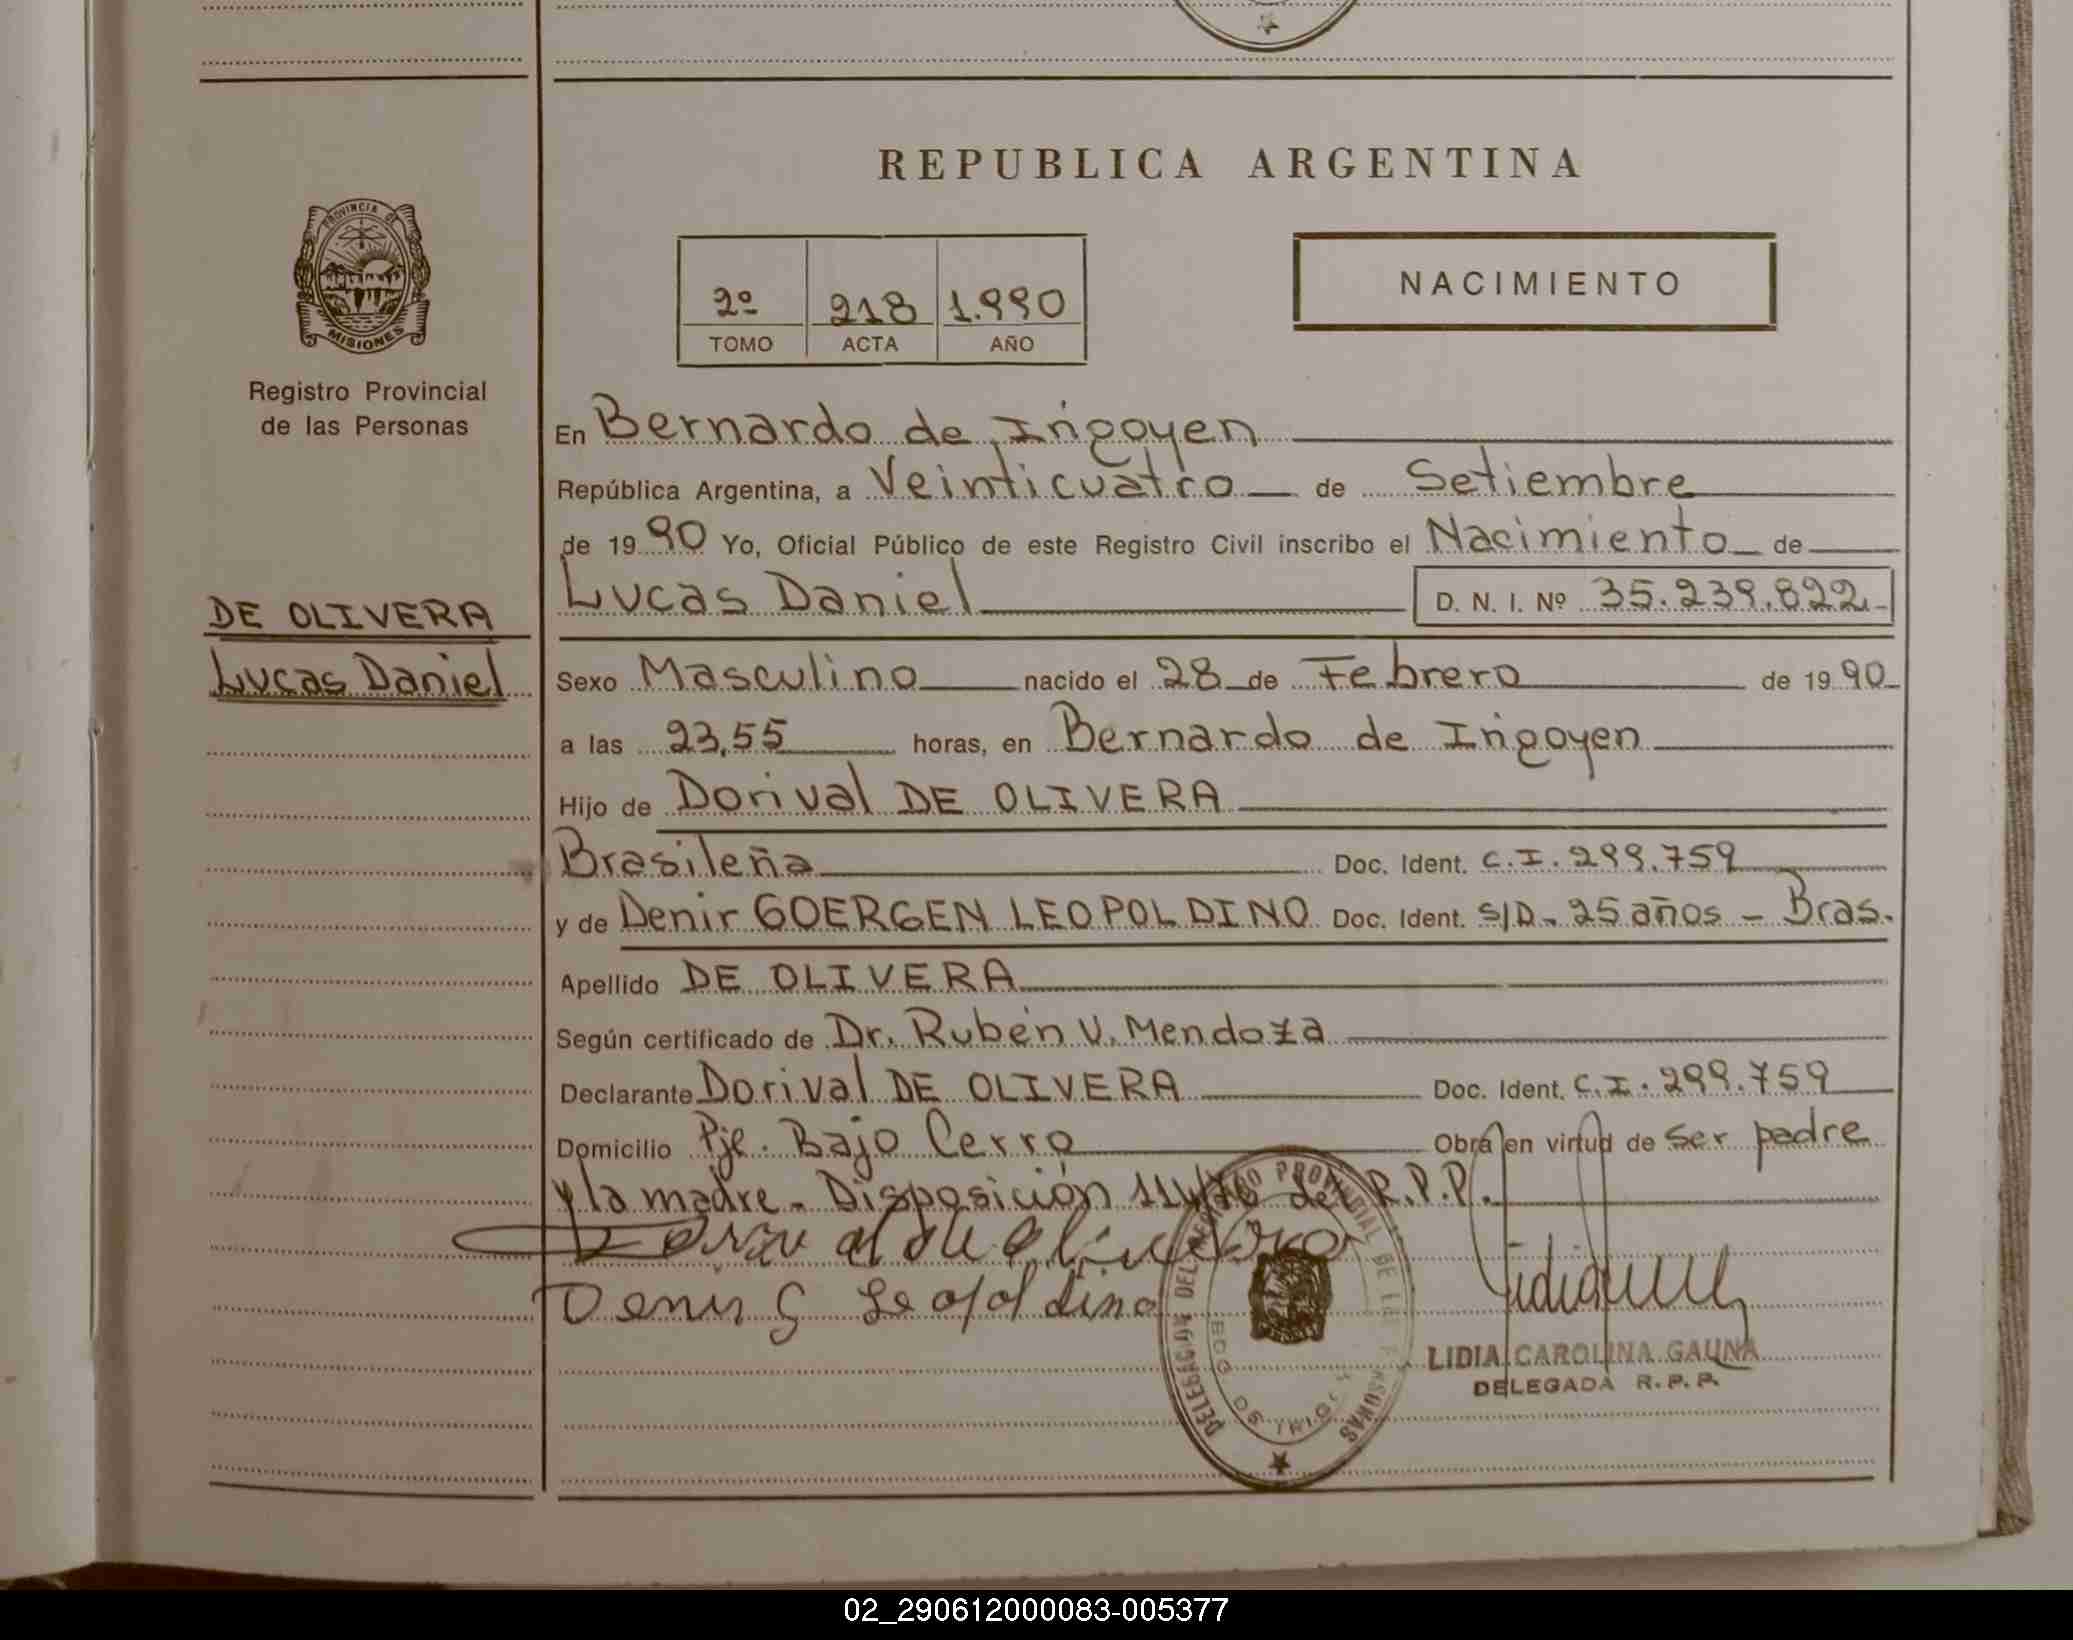 REPUBLICA ARGENTINA
PROVINCIA DE
MISIONES
Registro Provincial
de las Personas
2º 218 1.990
TOMO ACTA AÑO
NACIMIENTO
En Bernardo de Irigoyen
República Argentina, a Veinticuatro de Setiembre
de 19 90 Yo, Oficial Público de este Registro Civil inscribo el Nacimiento de
Lucas Daniel D. N. I. Nº 35.239.822
DE OLIVERA
Lucas Daniel
Sexo Masculino nacido el 28 de Febrero de 19 90
a las 23,55 horas, en Bernardo de Irigoyen
Hijo de Dorival DE OLIVERA
Brasileña Doc. Ident. C.I. 299.759
y de Denir GOERGEN LEOPOLDINO Doc. Ident. S/D - 25 años - Bras.
Apellido DE OLIVERA
Según certificado de Dr. Rubén V. Mendoza
Declarante Dorival DE OLIVERA Doc. Ident. C.I. 299.759
Domicilio Pje. Bajo Cerro Obra en virtud de ser padre
y la madre - Disposición 114/76 del R.P.P.
Denir G Leopoldino
DELEGACIÓN DEL REGISTRO PROVINCIAL DE LAS PERSONAS
BDO DE IRIGOYEN
LIDIA CAROLINA GAUNA
DELEGADA R.P.P.
02_290612000083-005377